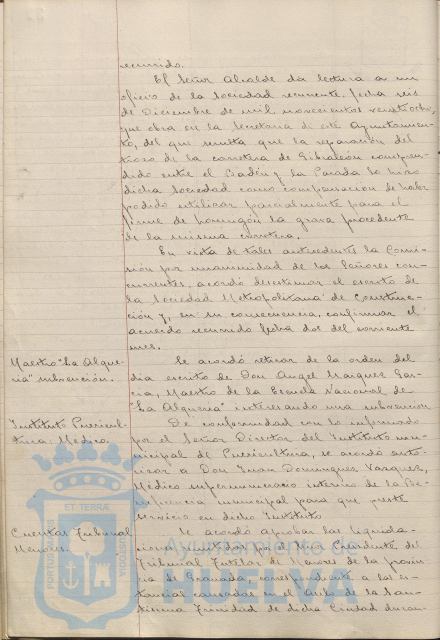 recurrido.
El Señor Alcalde da lectura a un
oficio de la Sociedad recurrente, fecha seis
de Diciembre de mil novecientos veintiocho,
que obra en la Secretaria de este Ayuntamien-
to, del que resulta que la reparación del
trozo de la carretera de Gibraleón compren-
dido entre el Badén y la Parada lo hizo
dicha Sociedad como compensacion de haber
podido utilizar parcialmente para el
firme de hormigón la grava procedente
de la misma carretera.
En vista de tales antecedentes la Comi-
sión por unanimidad de los Señores con-
currentes, acordó desestimar el escrito de
la Sociedad Metropolitana de Construc-
ción y, en su consecuencia, confirmar el
acuerdo recurrido fecha dos del corriente
mes.
Maestro "La Alque-
ria" subvención.
Se acordó retirar de la orden del
dia escrito de Don Angel Marquez Gar-
cia, Maestro de la Escuela Nacional de
"La Alqueria" interesando una subvencion
Instituto Puericul-
tura: Medico.
De conformidad con lo informado
por el Señor Director del Instituto mu-
nicipal de Puericultura, se acordó auto-
rizar a Don Juan Dominguez Vazquez,
Médico supernumerario interino de la Be-
neficencia municipal para que preste
servicio en dicho Instituto
Cuentas Tribunal
Menores.
Se acordó aprobar las liquida-
ciones por el Presidente del
Tribunal Tutelar de Menores de la provin-
cia de Granada, correspondiente a las es-
tancias causadas en el Asilo de la San-
tisima Trinidad de dicha Ciudad duran-
PORTUS MARIS
ET TERRAE
CUSTODIA
Ayuntamiento de
HUELVA